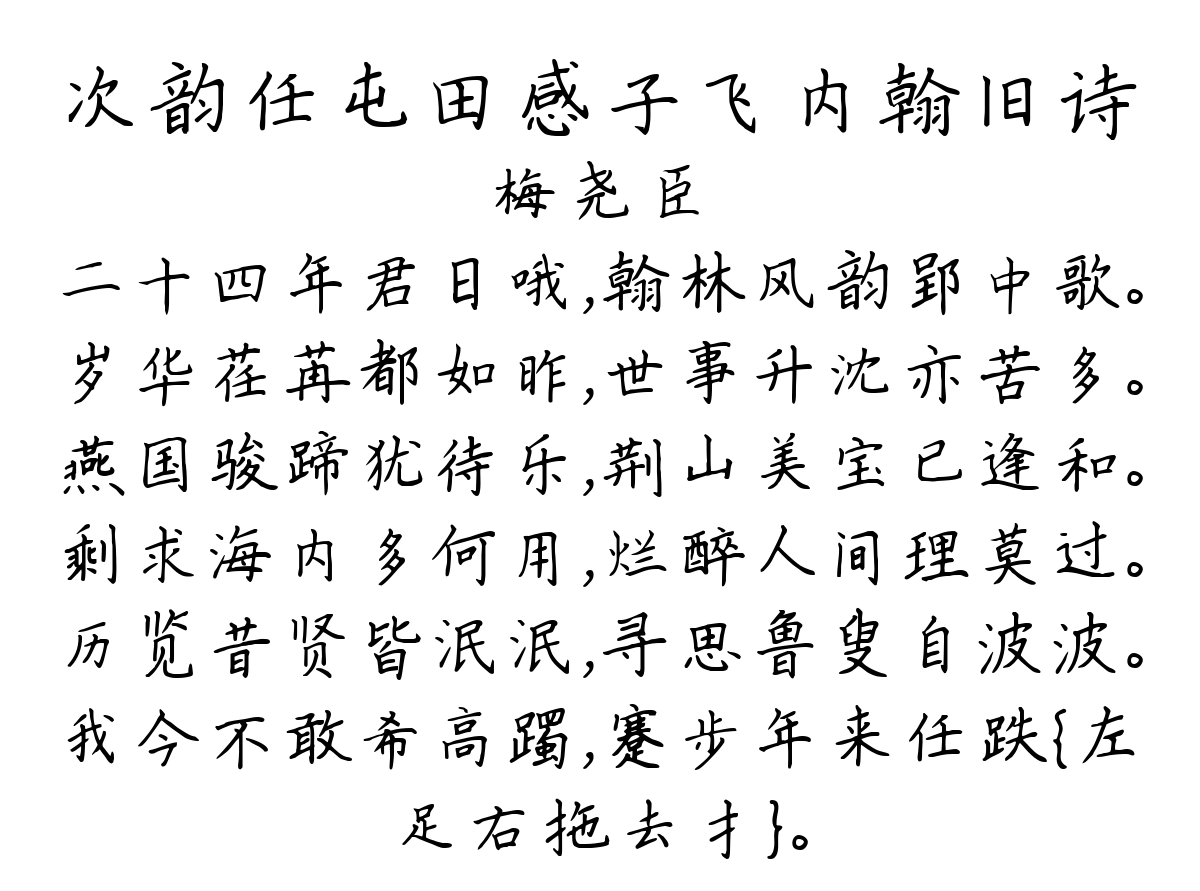 次韵任屯田感子飞内翰旧诗
梅尧臣
二十四年君日哦,翰林风韵郢中歌。
岁华荏苒都如昨,世事升沈亦苦多。
燕国骏蹄犹待乐,荆山美宝已逢和。
剩求海内多何用,烂醉人间理莫过。
历览昔贤皆泯泯,寻思鲁叟自波波。
我今不敢希高躅,蹇步年来任跌{左
足右拖去扌}。